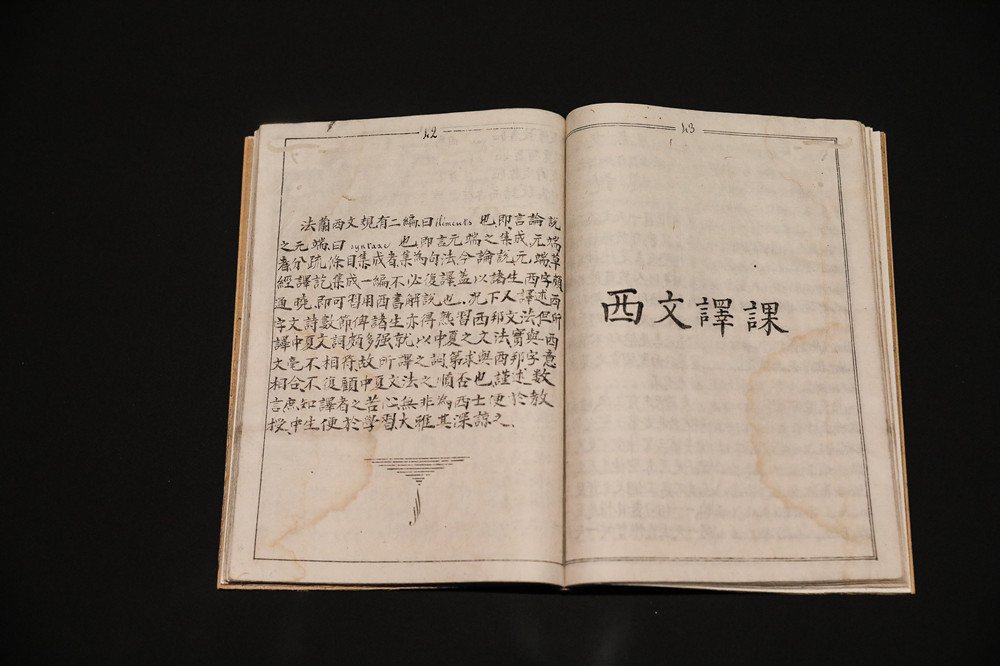 42
法蘭西文規有二編曰éléments也即言論說
之元端曰syntaxe也即言元端之集成元端
者分疏條目集成者集為句法今論說元端草
經譯訖集成一編不必復譯蓋以諸生西字頗
通曉即可習用西書解說也况下人譯述西
字文詩數節俾諸生亦得熟習西邦文法但所
譯中夏文詞頗多强就以中夏之文法實與西
文毫不相符故所譯之詞第求與西邦字意
相合不復顧中夏文法之順否也謹述數
言庶知譯者之苦心無非為西士便於教
授中生便於學習大雅其深諒之
43
西文譯課